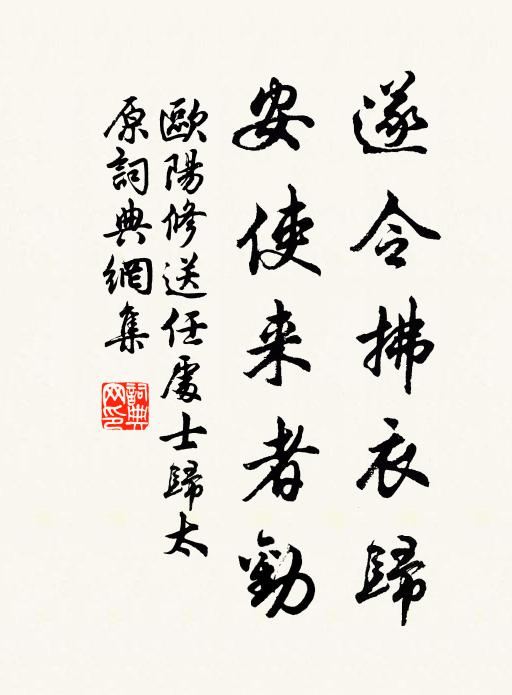 遂令拂衣歸
安使来者勸
歐陽修送任處士歸太
原詞典網集
詞典
网印